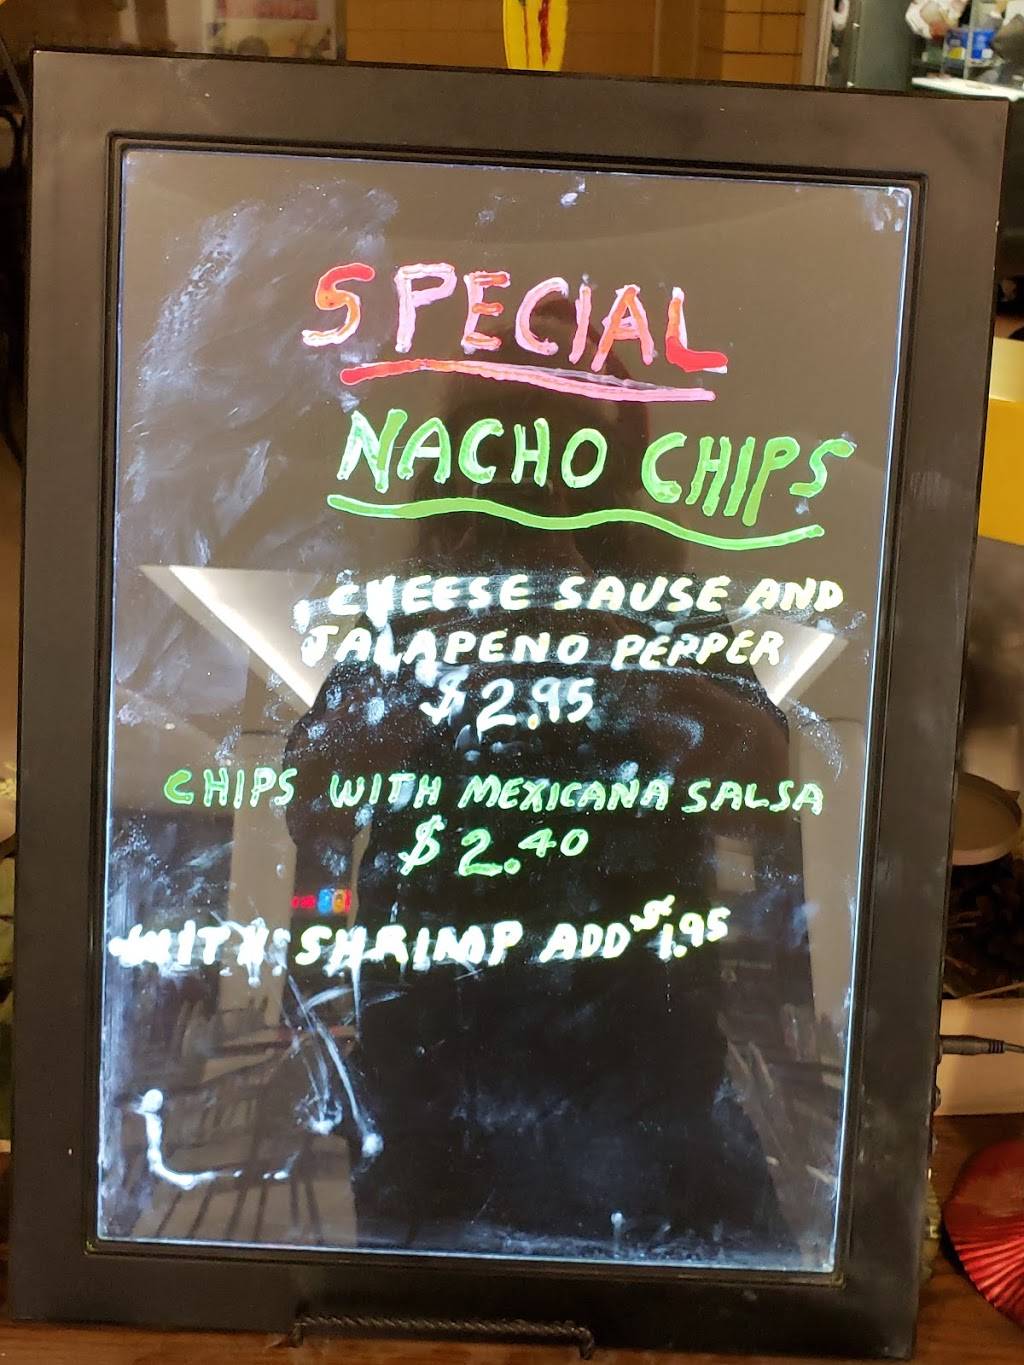 SPECIAL
NACHO CHIPS
CHEESE SAUSE AND
JALAPENO PEPPER
$2.95
CHIPS WITH MEXICANA SALSA
$2.40
WITH SHRIMP ADD $1.95